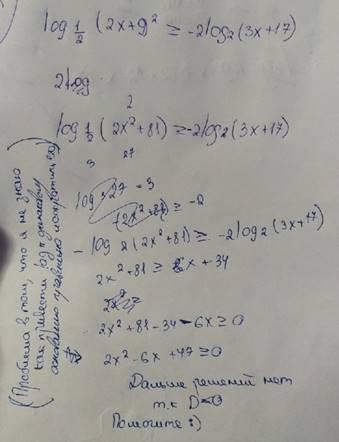 log 1/2 (2x+9)² ≥ -2log₂(3x+17)
2log
2
log 1/2 (2x²+81) ≥ -2log₂(3x+17)
log 27 = 3
(2x²+81) ≥ -2
- log₂(2x²+81) ≥ -2log₂(3x+17)
2x²+81 ≥ 6x+34
2x²+81-34-6x ≥ 0
2x²-6x+47 ≥ 0
Дальше решений нет
т.к D<0
Помогите :)
(Проблема в том, что я не знаю
как привести log к одинаковому
основанию правильно и сократить его)